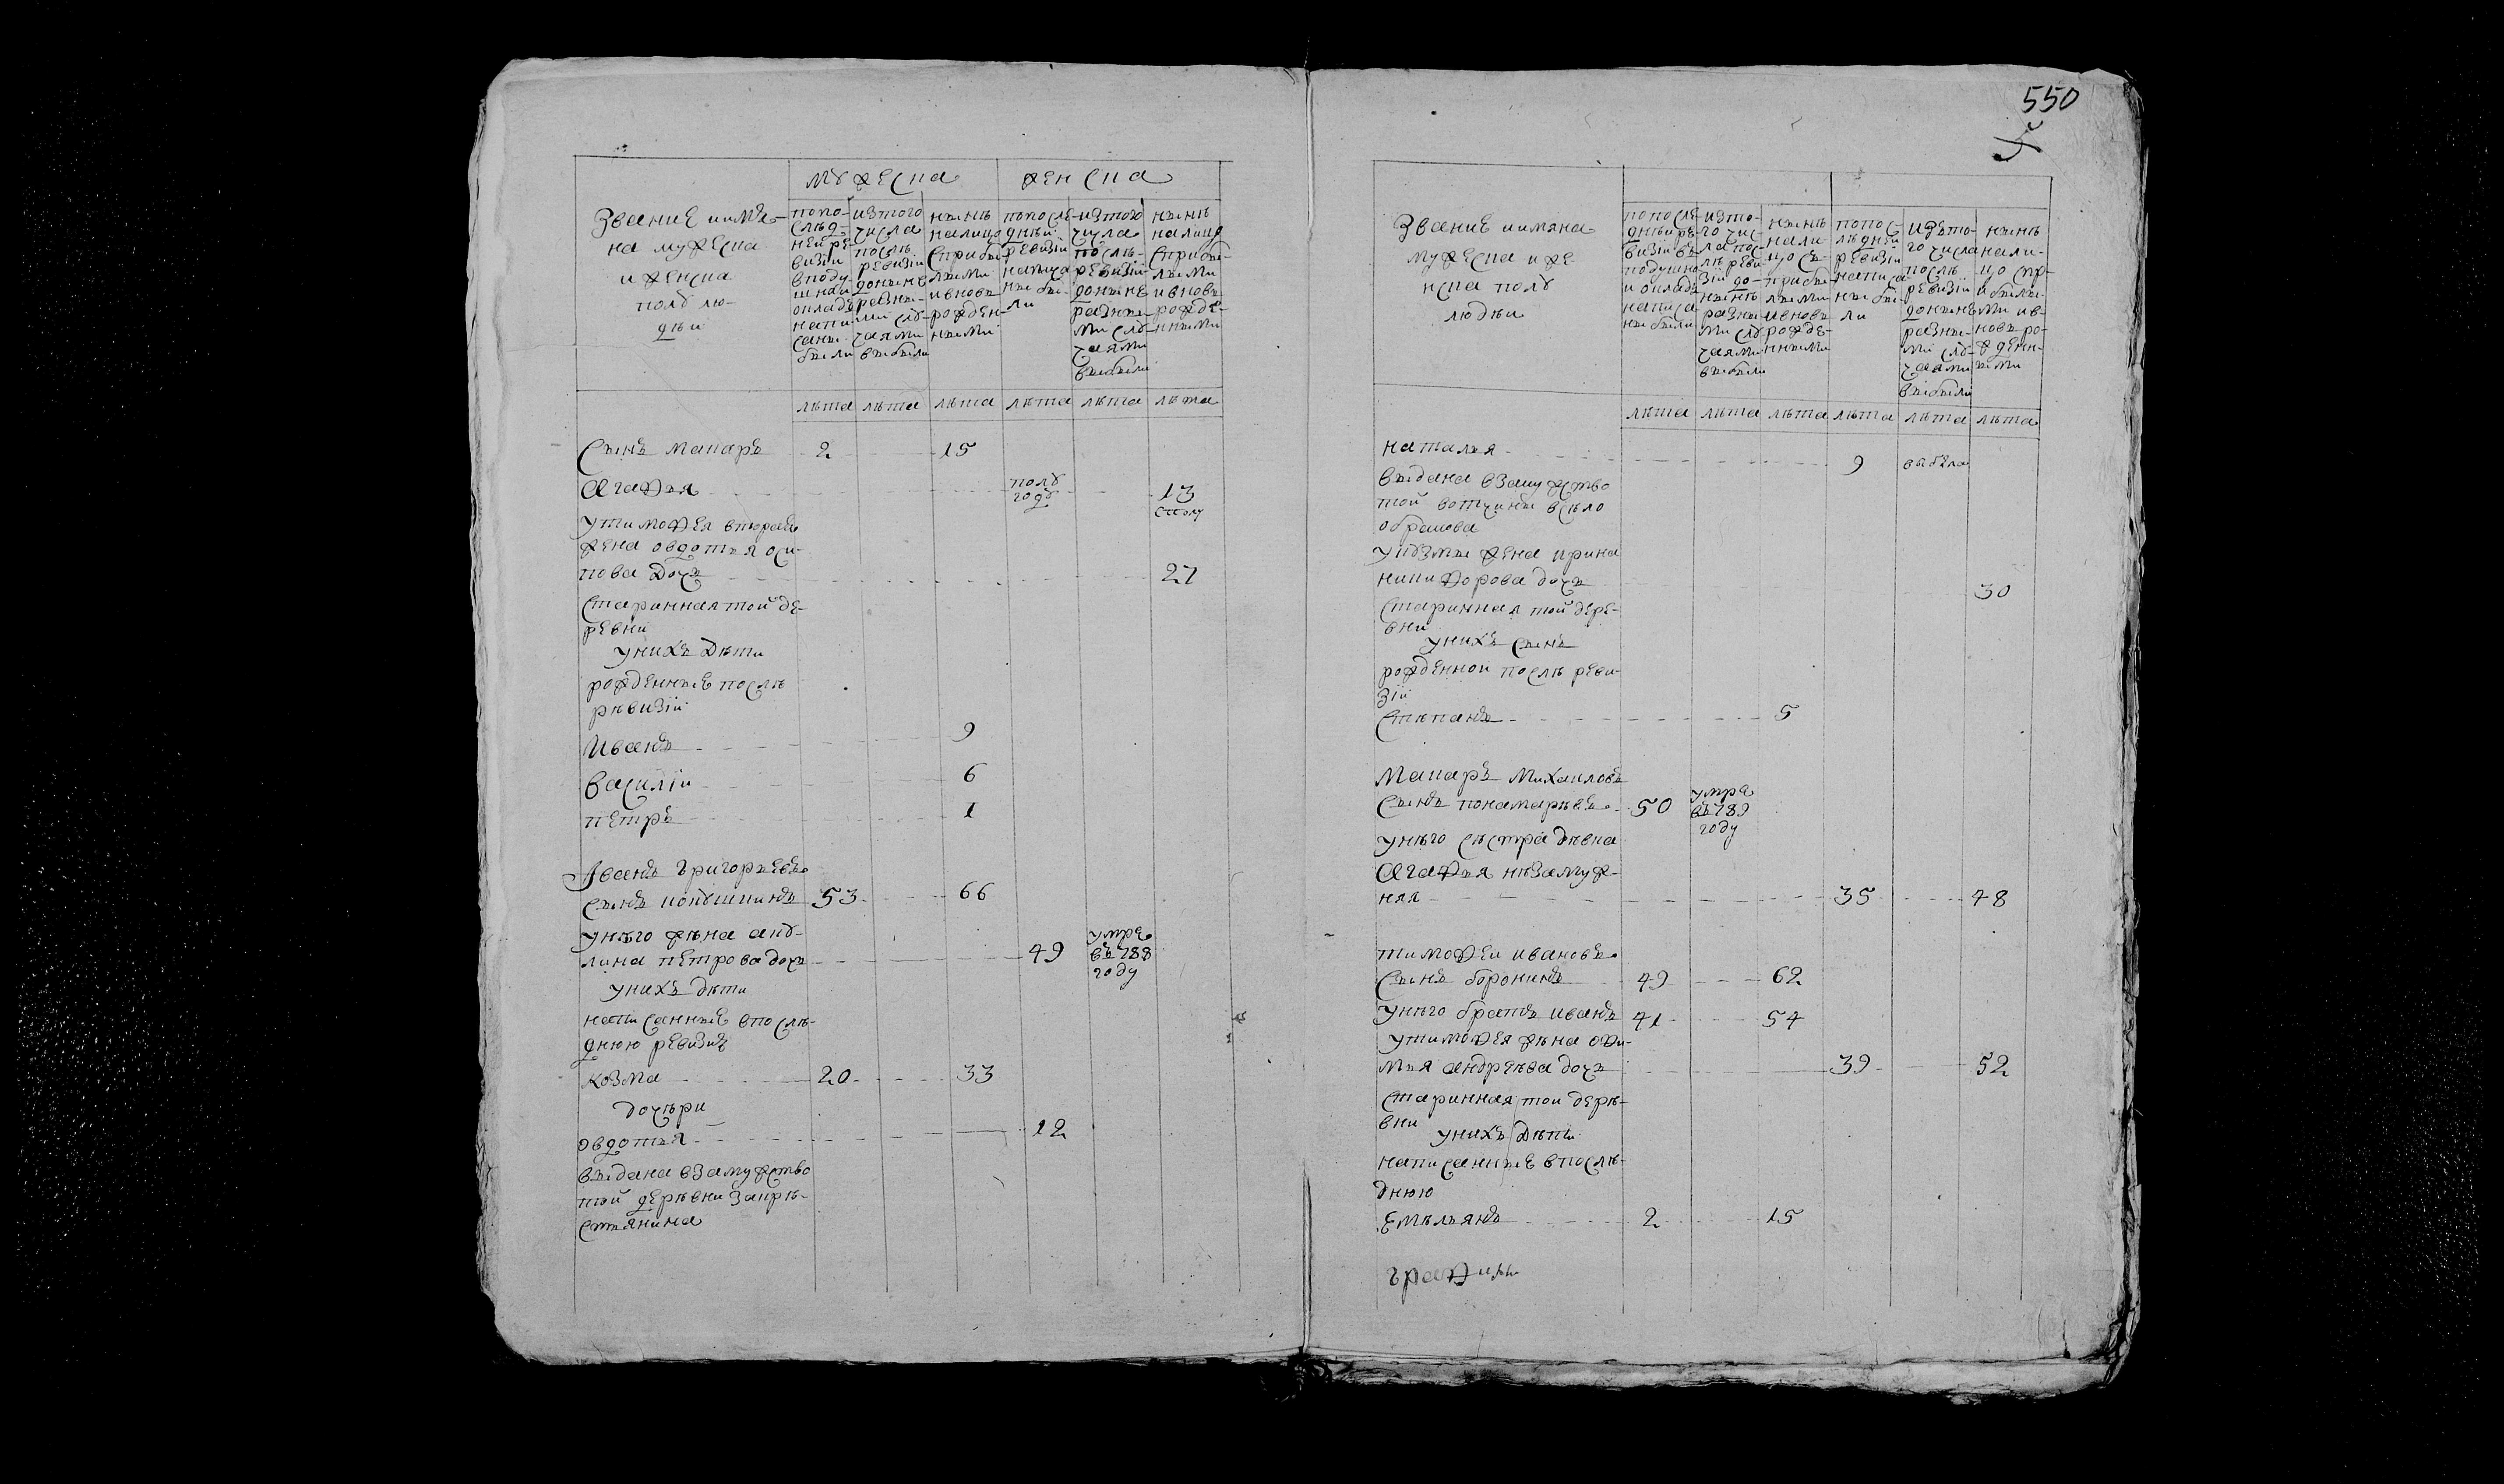 550
мужеска женска
Звание иимѣ-
на мужеска
иженска
полу лю-
дѣй
попо-
слѣд-
ней ре-
визiи
вподу-
шной
окладъ
напи-
саны
были
изтого
числа
послѣ
ревизiи
доныне
разны-
ми слу-
чаями
выбыли
нынѣ
налицо
сприбы-
лыми
ивновь
рожден-
ными
попослѣ-
днѣй
ревизiи
написа
ны бы-
ли
изтого
числа
послѣ
ревизiи
доныне
разны-
ми слу-
чаями
выбыли
нынѣ
налицо
сприбы-
лыми
ивновь
рожде-
нными
лѣта лѣта лѣта лѣта лѣта лѣта
Сынъ Макаръ 2 15
Агафья полу
году 13
утимофея вторая
жена овдотья оси-
пова дочь 27
Старинная той де-
ревни
унихъ дѣти
рожденные послѣ
рѣвизiи
Иванъ 9
василiй 6
пѣтръ 1
Иванъ Григорьевъ
Сынъ кокушкинъ 53 66
унѣго жѣна аку-
лина пѣтрова дочь 49 умре
въ 788
году
унихъ дѣти
написанные впослѣ-
днюю ревизiю
козма 20 33
дочѣри
овдотья 12
выдана взамужство
той дерѣвни закрѣ-
стьянина
Звание иимяна
мужеска иже
нска полу
людѣй
попослѣ-
днѣй ре-
визiи въ
подушно
и окладъ
написа
ны были
изто-
го чис-
ла пос-
лѣ реви-
зiи до-
нынѣ
разны
ми слу
чаями
выбыли
нынѣ
нали-
цо съ
прибы-
лыми
ивновь
рожде-
нными
попос-
лѣдней
ревизiи
написа-
ны бы-
ли
изъто-
го числа
послѣ
ревизiи
донынѣ
разны-
ми слу-
чаями
выбыли
нынѣ
нали-
цо спр-
ибылы-
ми ив-
новь ро-
жденн-
ыми
лѣта лѣта лѣта лѣта лѣта лѣта
наталья 9 выбыла
выдана взамужство
той вотчины всѣло
обрамова
укузмы жена ирина
никифорова дочь 30
Старинная той дере-
вни
унихъ сынъ
рожденной послѣ реви-
зiи
Стѣпанъ 5
Макаръ Михаиловъ
Сынъ понамарѣвъ 50 умре
въ 789
году
унѣго сѣстра дѣвка
Агафья нѣзамуж-
няя 35 48
тимофей ивановъ
Сынъ боронинъ 49 62
унѣго братъ иванъ 41 54
утимофея жѣна офи-
мья андрѣева дочь 39 52
Старинная той дерѣ-
вни
унихъ дѣти
написанные впослѣ-
днюю
Емѣльянъ 2 15